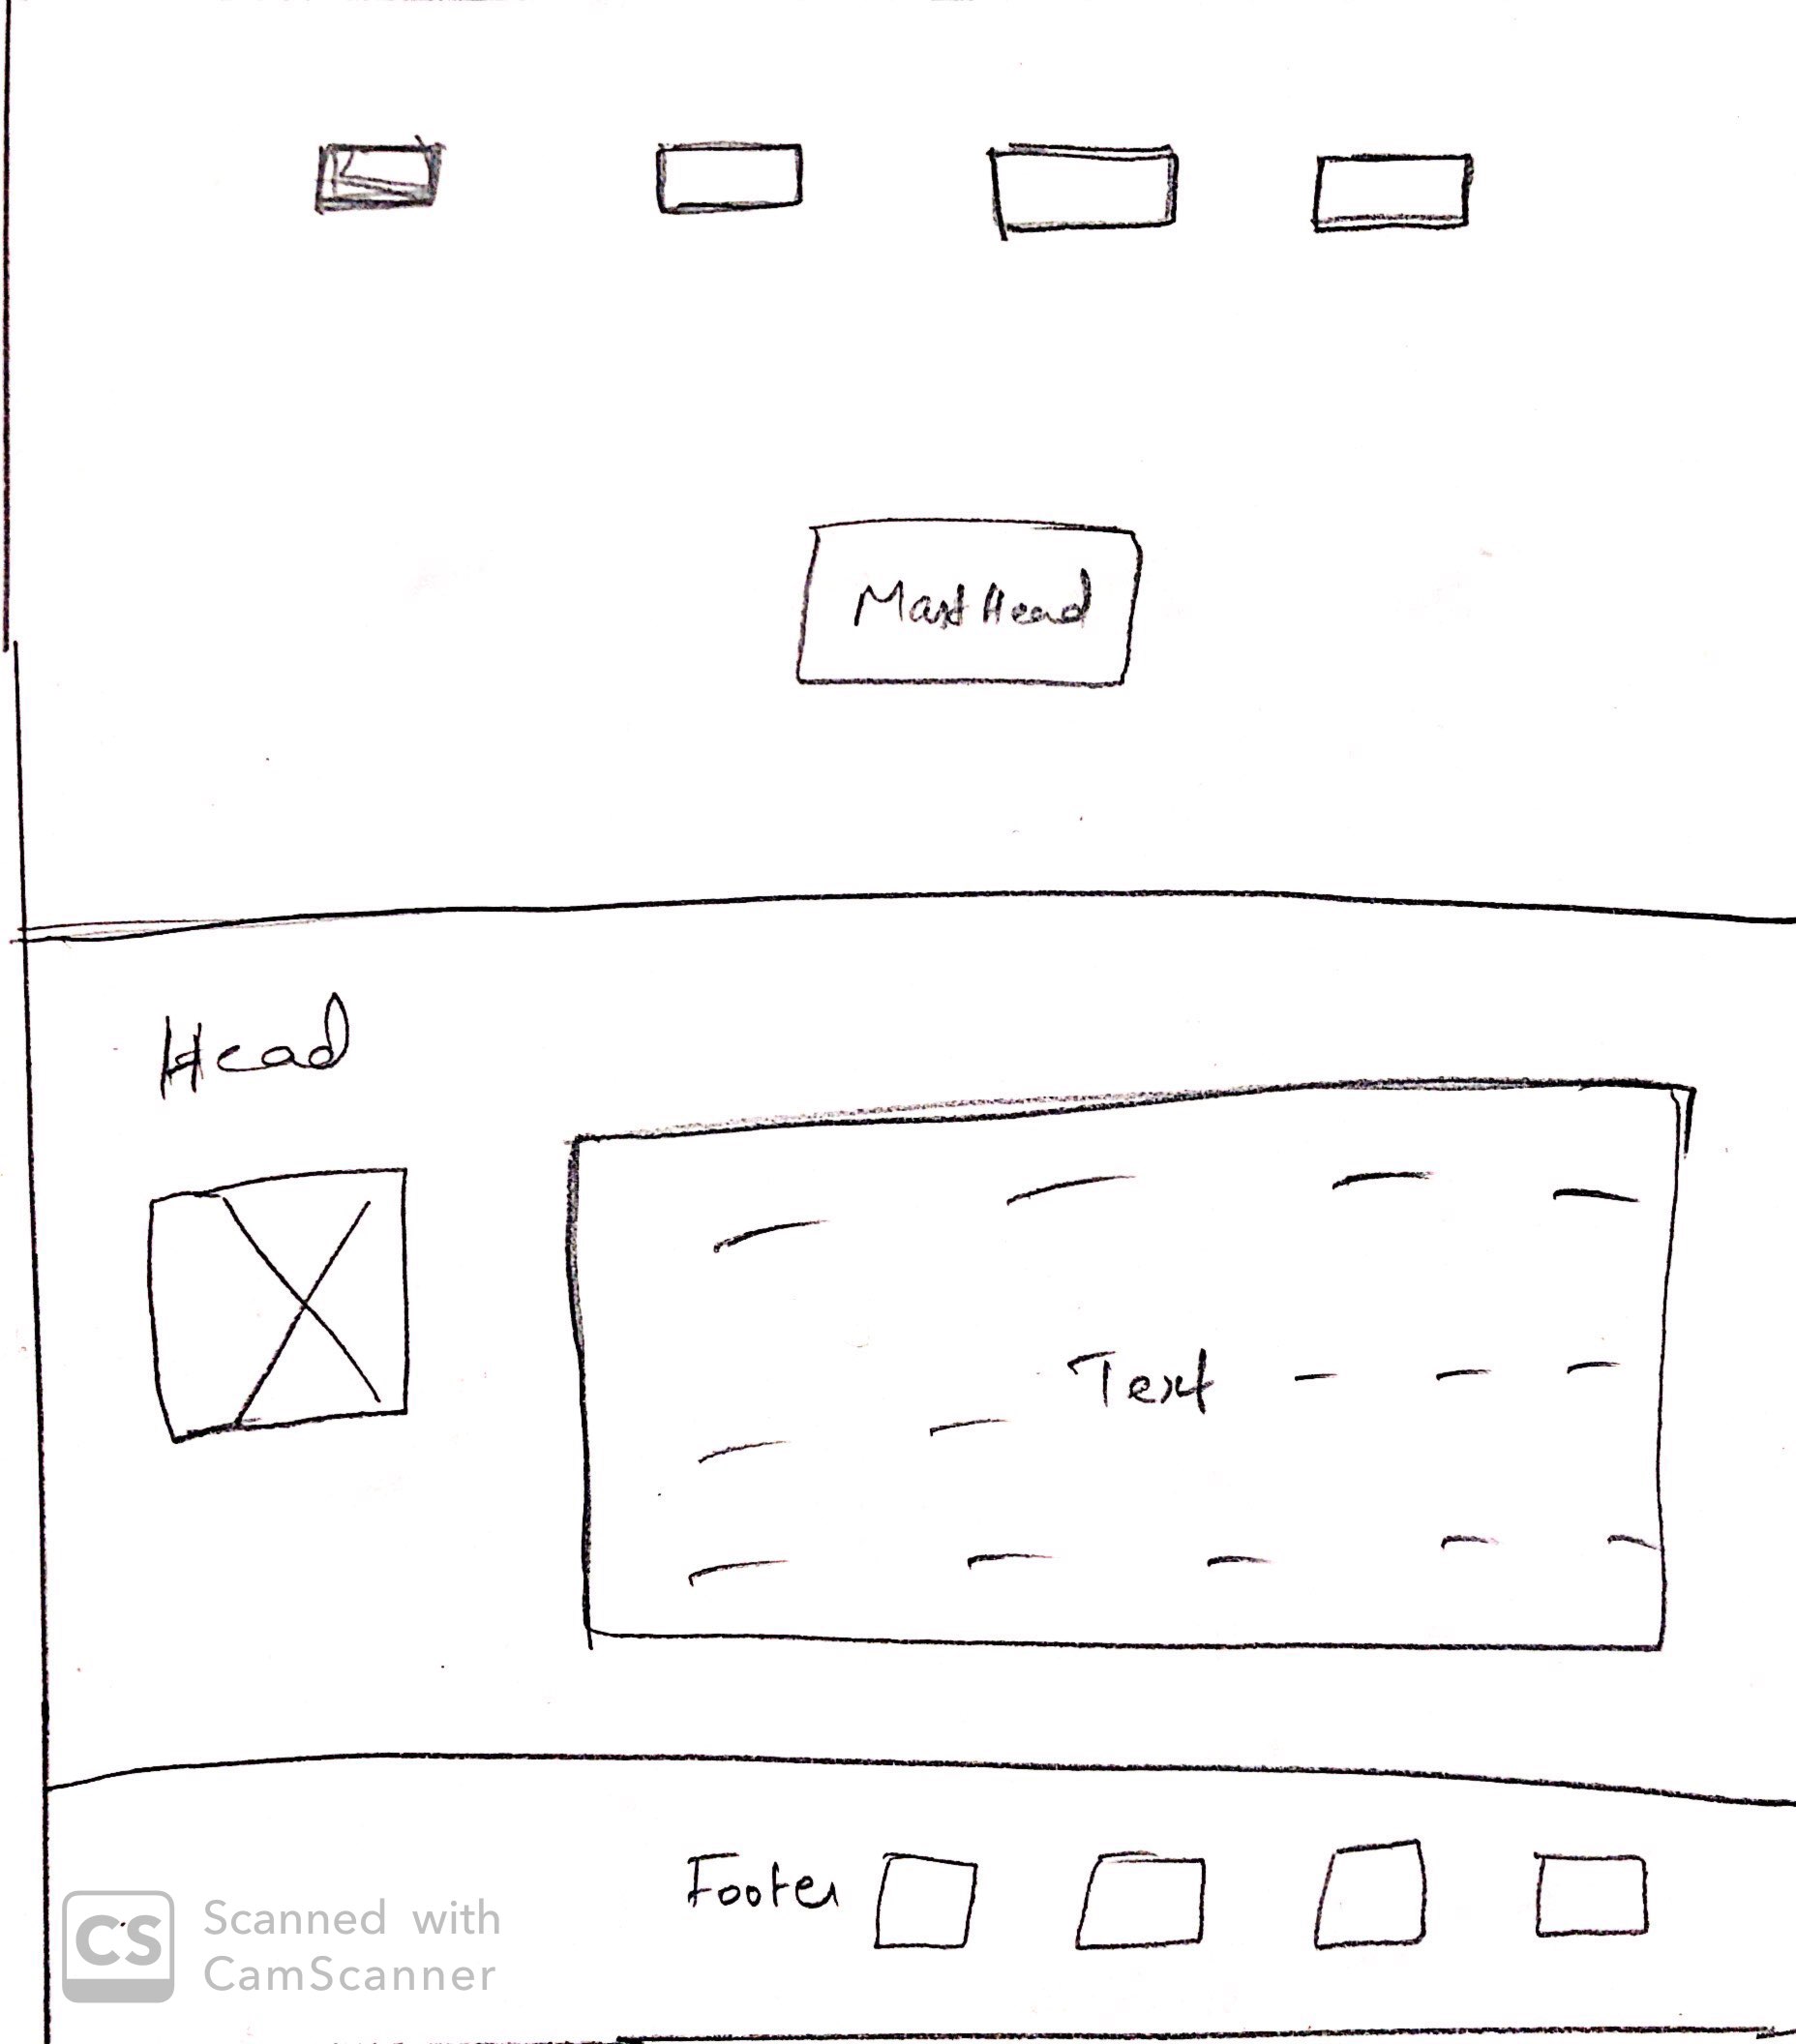 Mast Head
Head
Text
Footer
CS
Scanned with
CamScanner